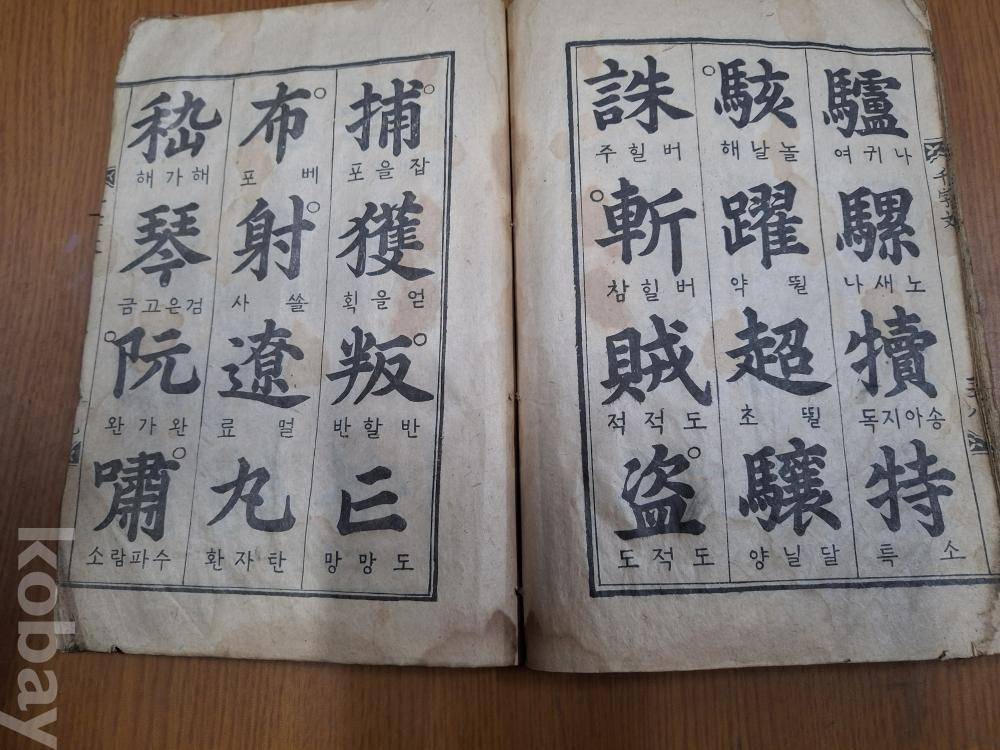 驢
나귀여
騾
노새나
犢
송아지독
特
소특
駭
놀날해
躍
뛸약
超
뛸초
驤
달닐양
誅
버힐주
斬
버힐참
賊
도적적
盜
도적도
千字文
捕
잡을포
獲
얻을획
叛
반할반
亡
도망망
布
베포
射
쏠사
遼
멀료
丸
탄자환
嵇
해가해
琴
검은고금
阮
완가완
嘯
수파람소
kobay